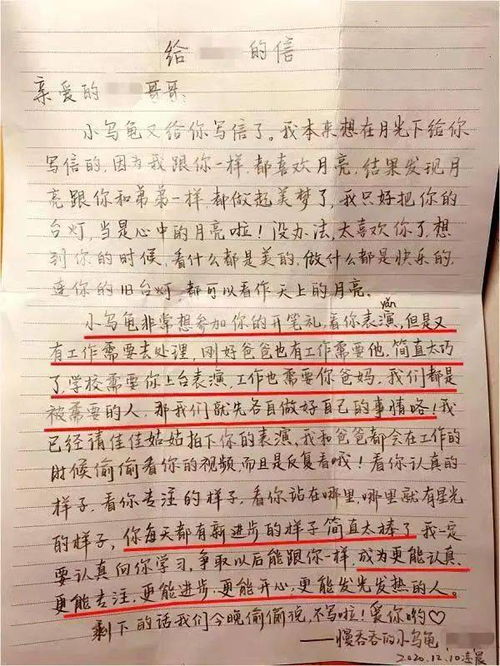 给 的信
亲爱的 哥哥:
小乌龟又给你写信了。我本来想在月光下给你
写信的,因为我跟你一样,都喜欢月亮,结果发现月
亮跟你和弟弟一样,都做起美梦了,我只好把你的
台灯,当是心中的月亮啦!没办法,太喜欢你了,想
到你的时候,看什么都是美的,做什么都是快乐的,
连你的旧台灯,都可以看作天上的月亮。
yǎn
小乌龟非常想参加你的开笔礼,看你表演,但是又
有工作需要去处理,刚好爸爸也有工作需要他,简直太巧
了,学校需要你上台表演,工作也需要你爸妈,我们都是
被需要的人,那我们就先各自做好自己的事情咯!我
已经请佳佳姑姑拍下你的表演,我和爸爸都会在工作的
时候偷偷看你的视频,而且是反复看哦!看你认真的
样子,看你专注的样子,看你站在哪里,哪里就有星光
的样子,你每天都有新进步的样子简直太棒了,我一定
要认真向你学习,争取以后能跟你一样,成为更能认真,
更能专注,更能进步,更能开心,更能发光发热的人。
剩下的话我们今晚偷偷说,不写啦!爱你哟♡
——慢吞吞的小乌龟
2020.12.10凌晨